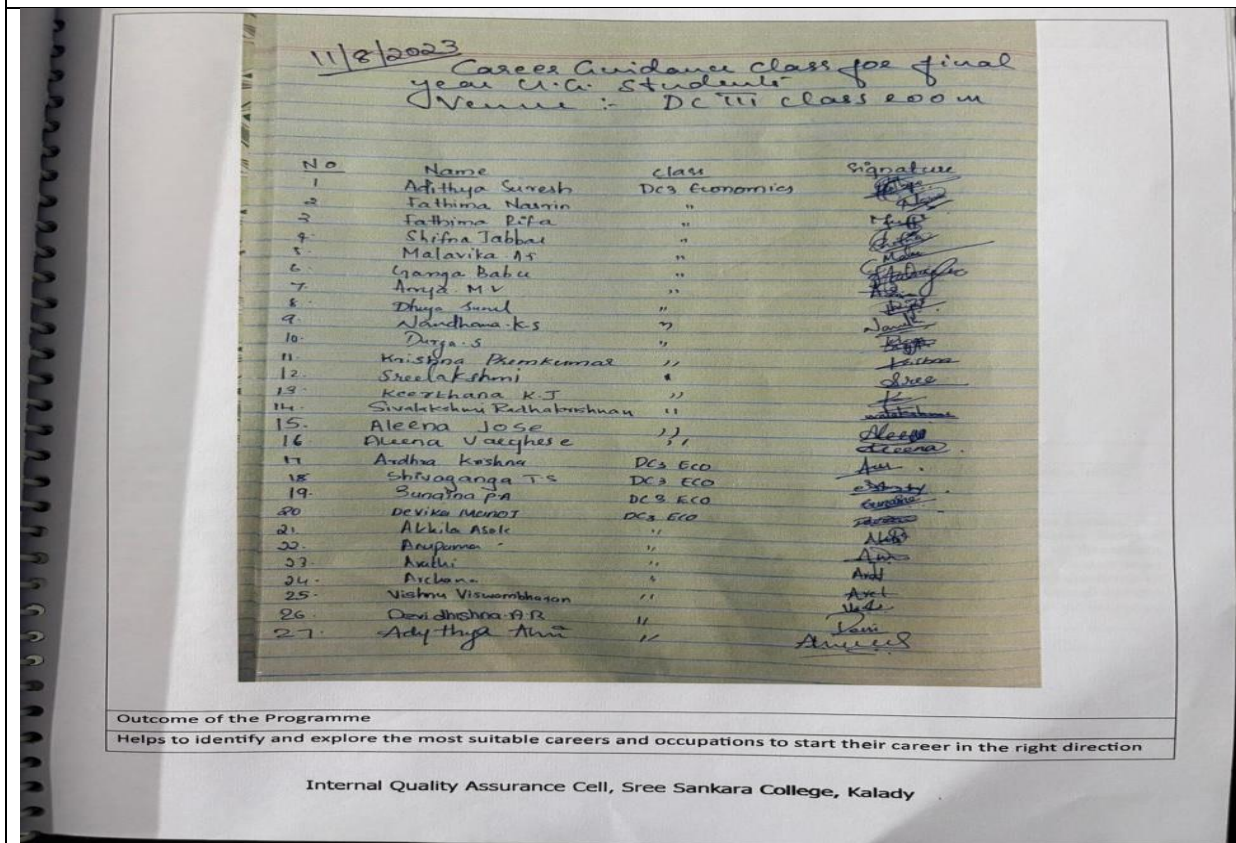 11/8/2023
Career Guidance class for final
year U.G. Students
Venue :- DC III class room
No Name class Signature
1 Adithya Suresh DC3 Economics
2 Fathima Nasrin "
3 Fathima Rifa "
4. Shifna Jabbar "
5. Malavika AS " Malu
6. Ganga Babu "
7. Anya MV "
8. Dhiya Sunil "
9. Nandhana.K.S "
10. Durga.S "
11. Krishna Premkumar " Krishna
12. Sreelakshmi " Sree
13. Keerthana K.J "
14. Sivalekshmi Radhakrishnan "
15. Aleena Jose " Aleena
16 Aleena Varghese " Aleena
17 Ardhra Krishna DC3 ECO
18 Shivaganga TS DC3 ECO
19. Sunaina PA DC3 ECO
20 Devika Manoj DC3 ECO
21. Akhila Asok "
22. Anupama "
23. Arathi "
24. Archana "
25. Vishnu Viswambharan "
26. Devidhishna.A.R "
27. Adythya "
Outcome of the Programme
Helps to identify and explore the most suitable careers and occupations to start their career in the right direction
Internal Quality Assurance Cell, Sree Sankara College, Kalady